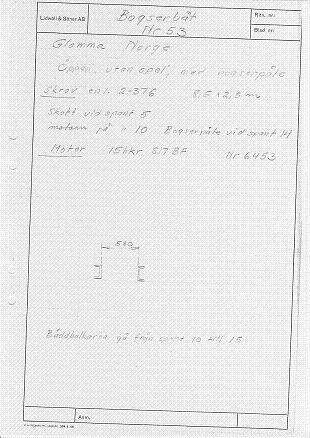 Lidwall & Söner AB
Bogserbåt
Nr 53
Ritn. nr:
Blad nr:
Glomma Norge
Öppen, utan spel, med bogserpåle
Skrov enl. 2-376 8,5 x 2,5 m
Skott vid spant 5
motorn på " 10 Bogserpåle vid spant 14
Motor 15 hkr B17 BF Nr 6453
540
Bäddbalkarna gå från spant 10 till 15
Anm.